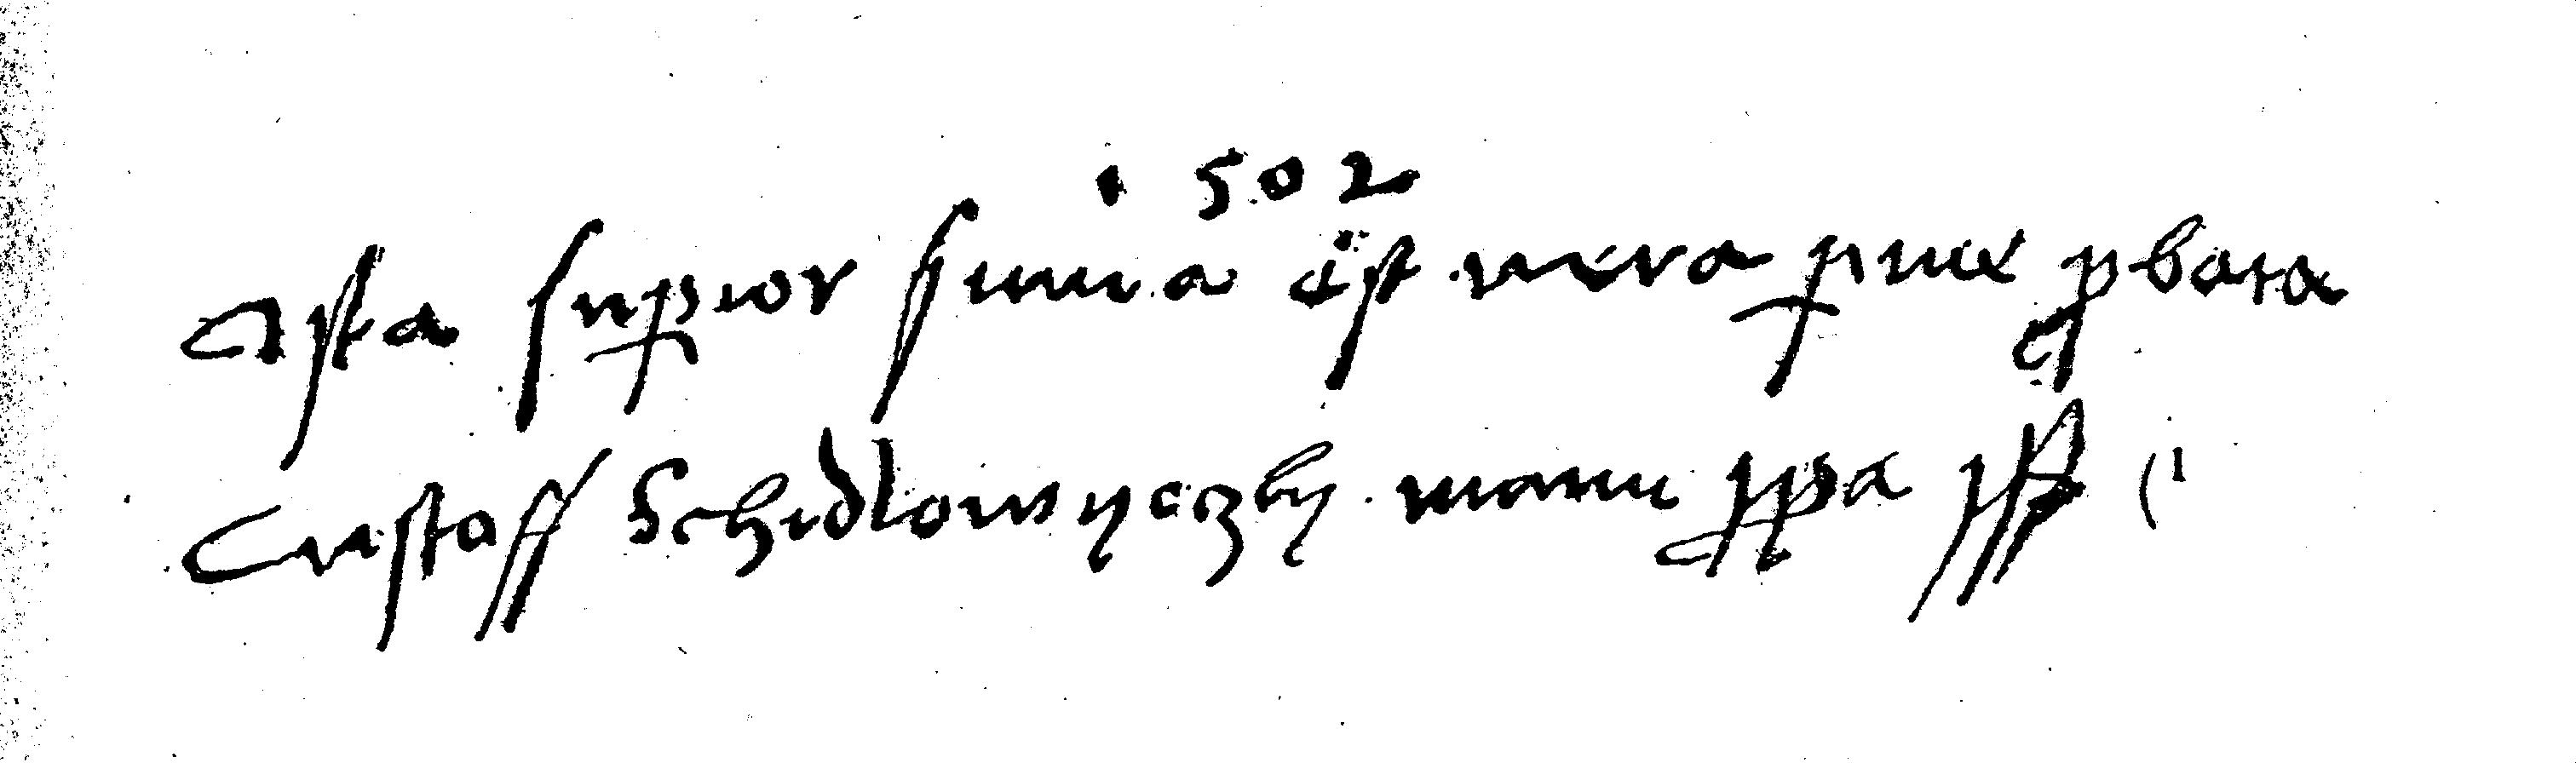 1502
Ista supior summa est vera p me pbata
Cristoff Schidlowyeczky manu ppa sspt